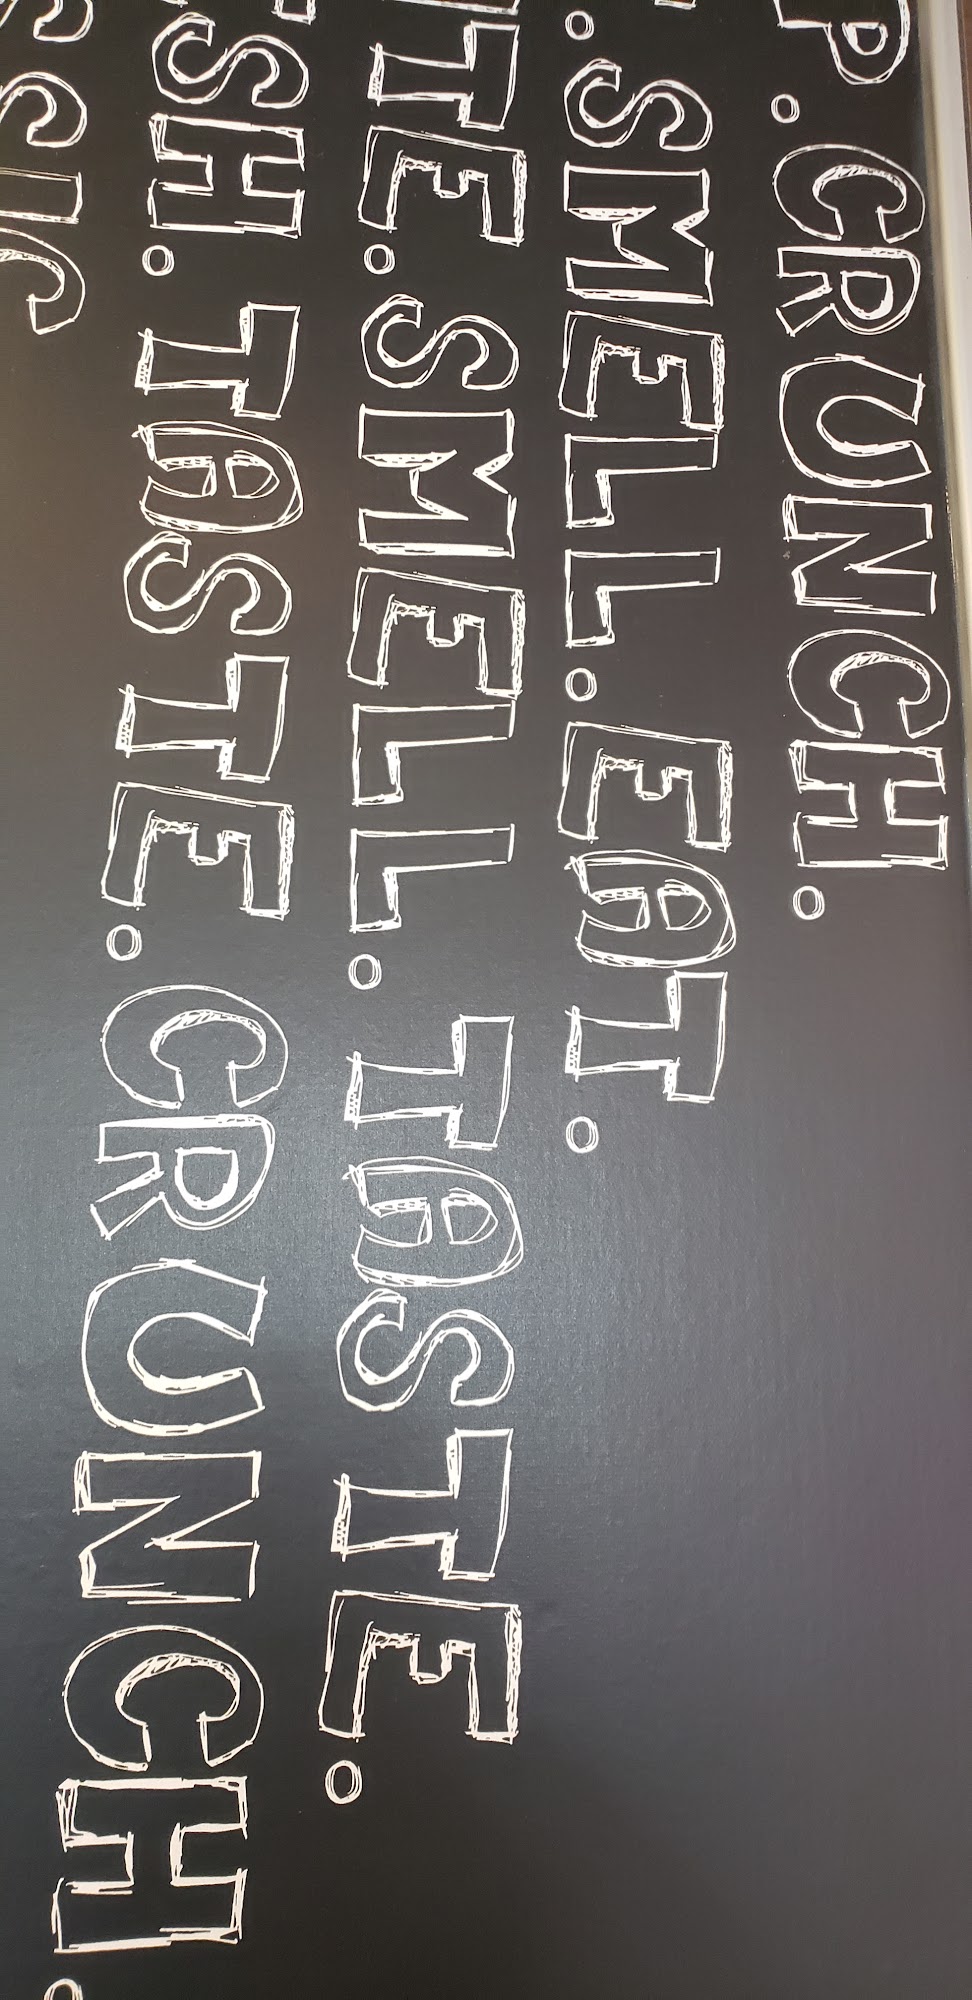 P. CRUNCH.
. SMELL. EAT.
TE. SMELL. TASTE.
SH. TASTE. CRUNCH.
SSIC